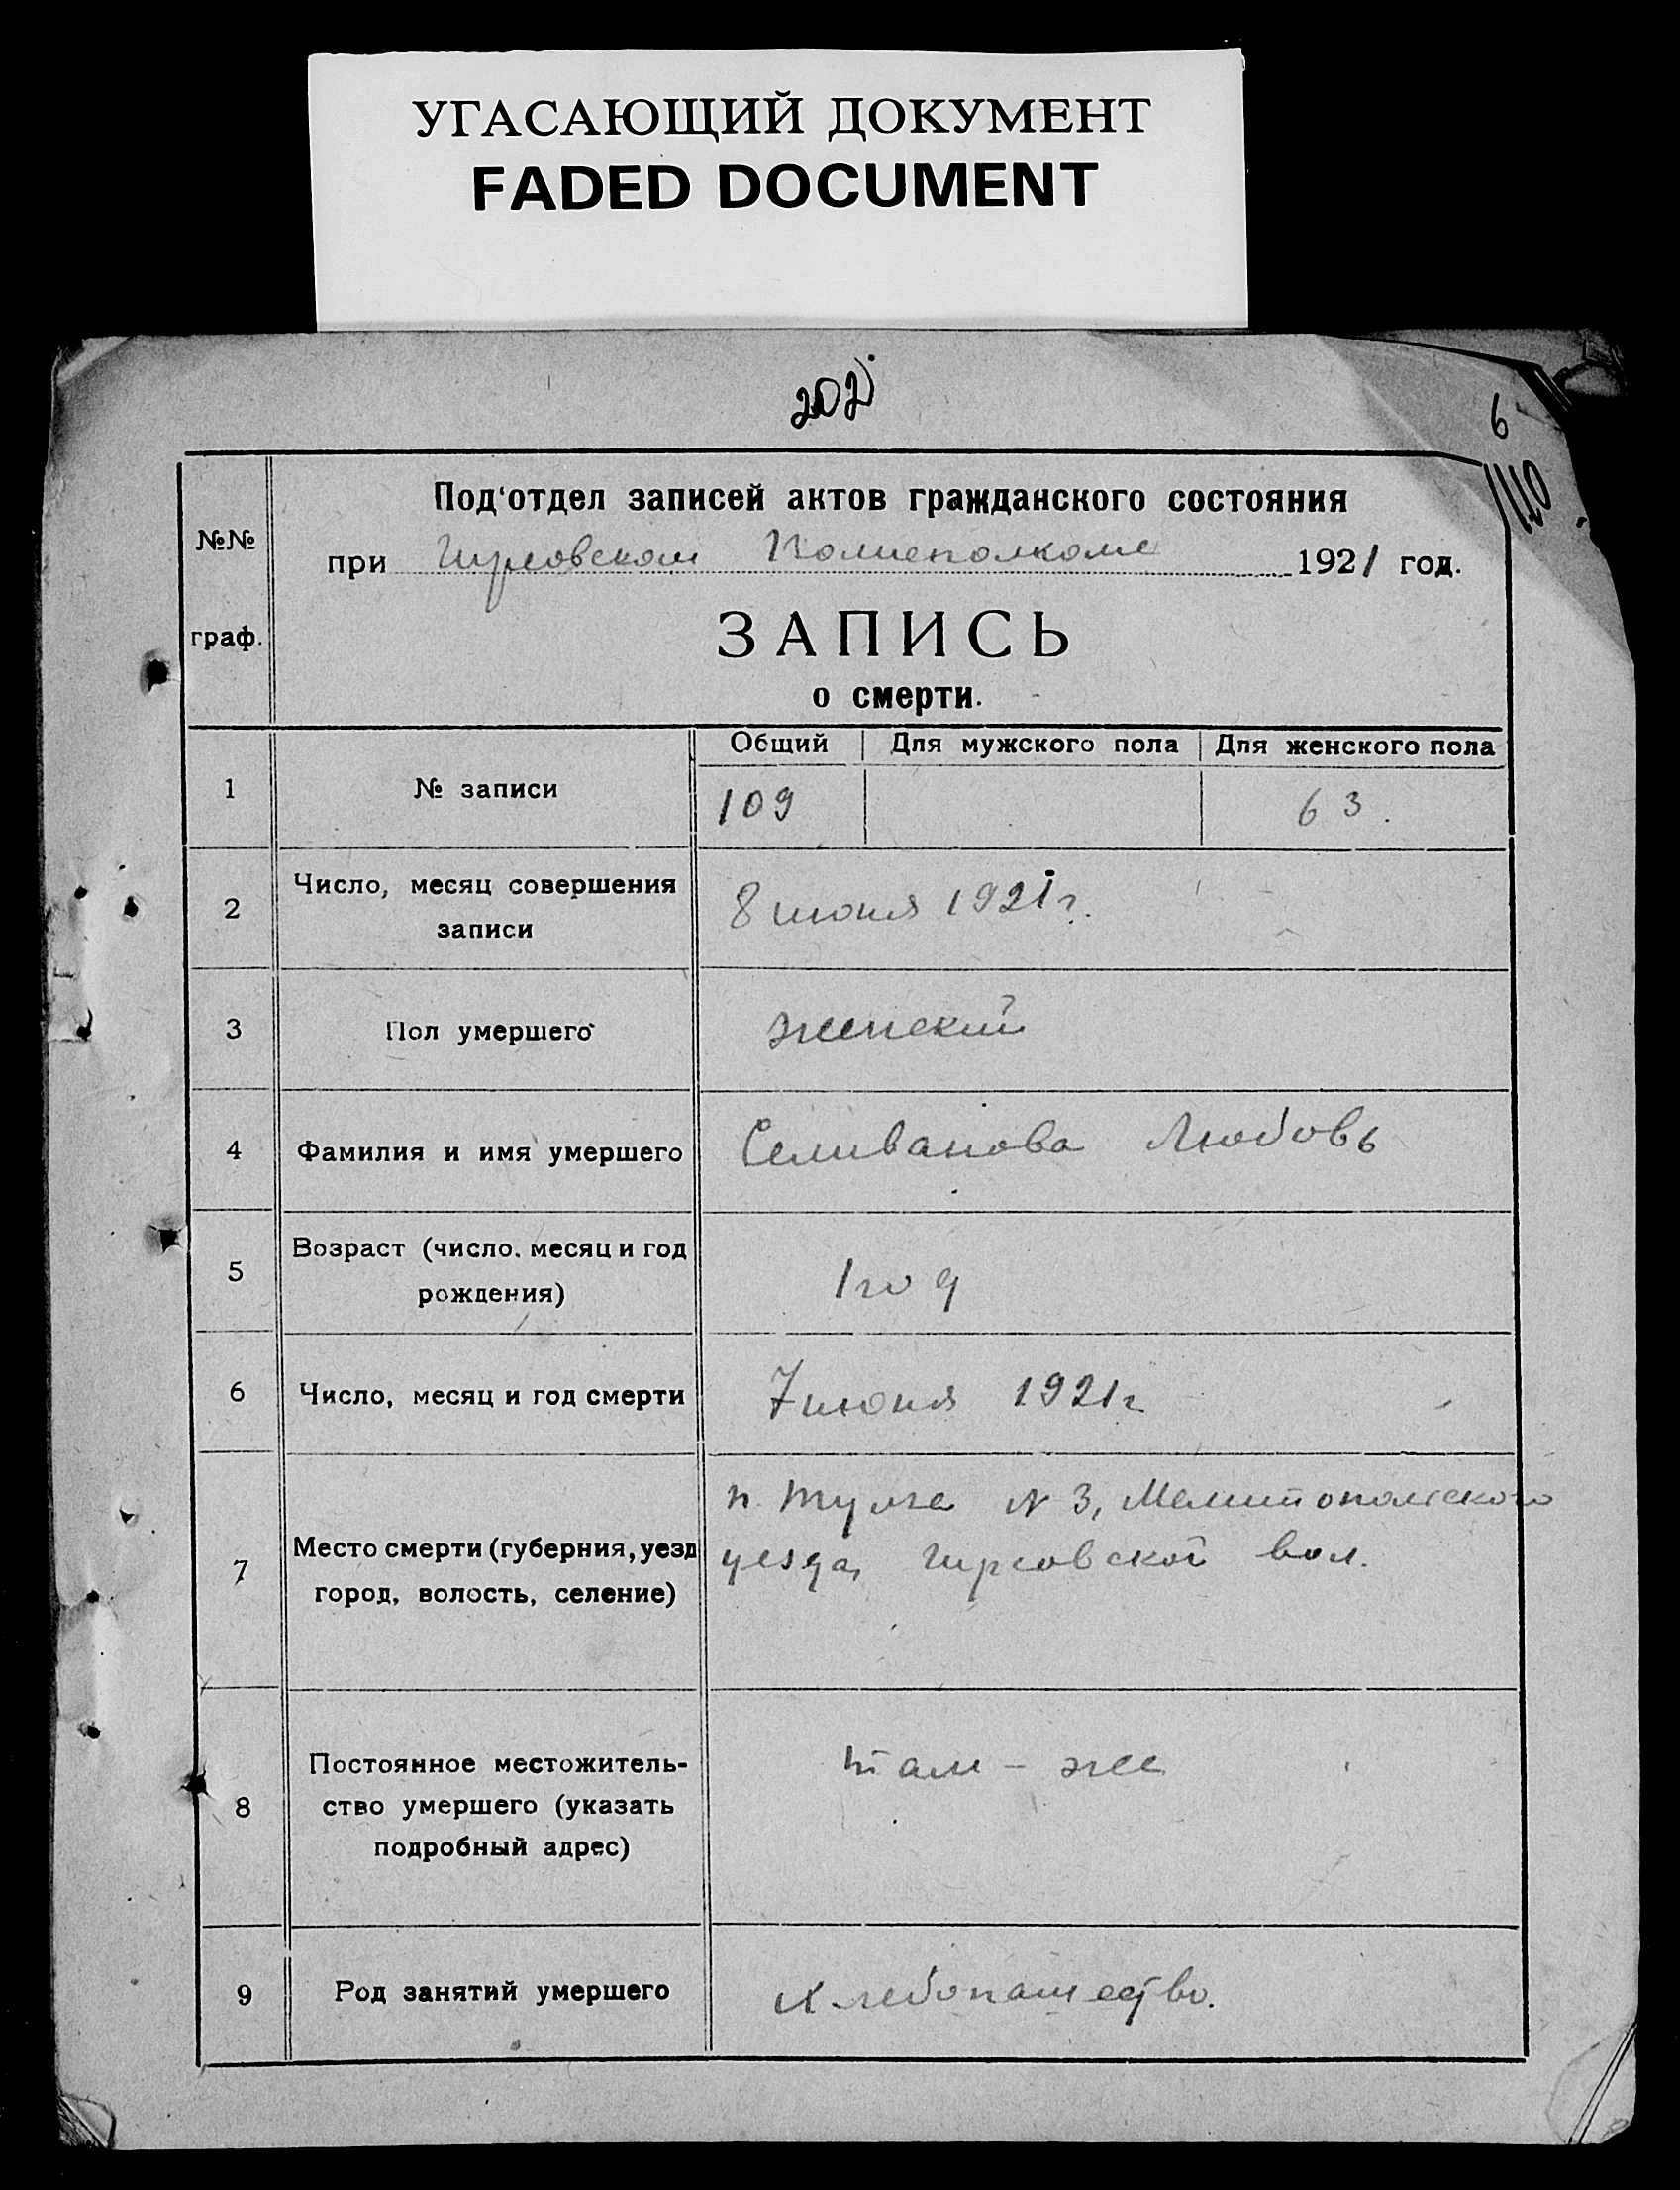 УГАСАЮЩИЙ ДОКУМЕНТ
FADED DOCUMENT
202
6
110
№№
граф.
Под‘отдел записей актов гражданского состояния
при Волисполкоме 1921 год.
ЗАПИСЬ
о смерти.
Общий Для мужского пола Для женского пола
1 № записи 109 63.
2 Число, месяц совершения
записи
8 июня 1921 г.
3 Пол умершего женский
4 Фамилия и имя умершего Селиванова Любовь
5 Возраст (число, месяц и год
рождения)
1 год
6 Число, месяц и год смерти 7 июня 1921 г
7 Место смерти (губерния, уезд
город, волость, селение)
п. N 3, Мелитопольского
уезда, вол.
8 Постоянное местожитель-
ство умершего (указать
подробный адрес)
там - же
9 Род занятий умершего хлебопашество.